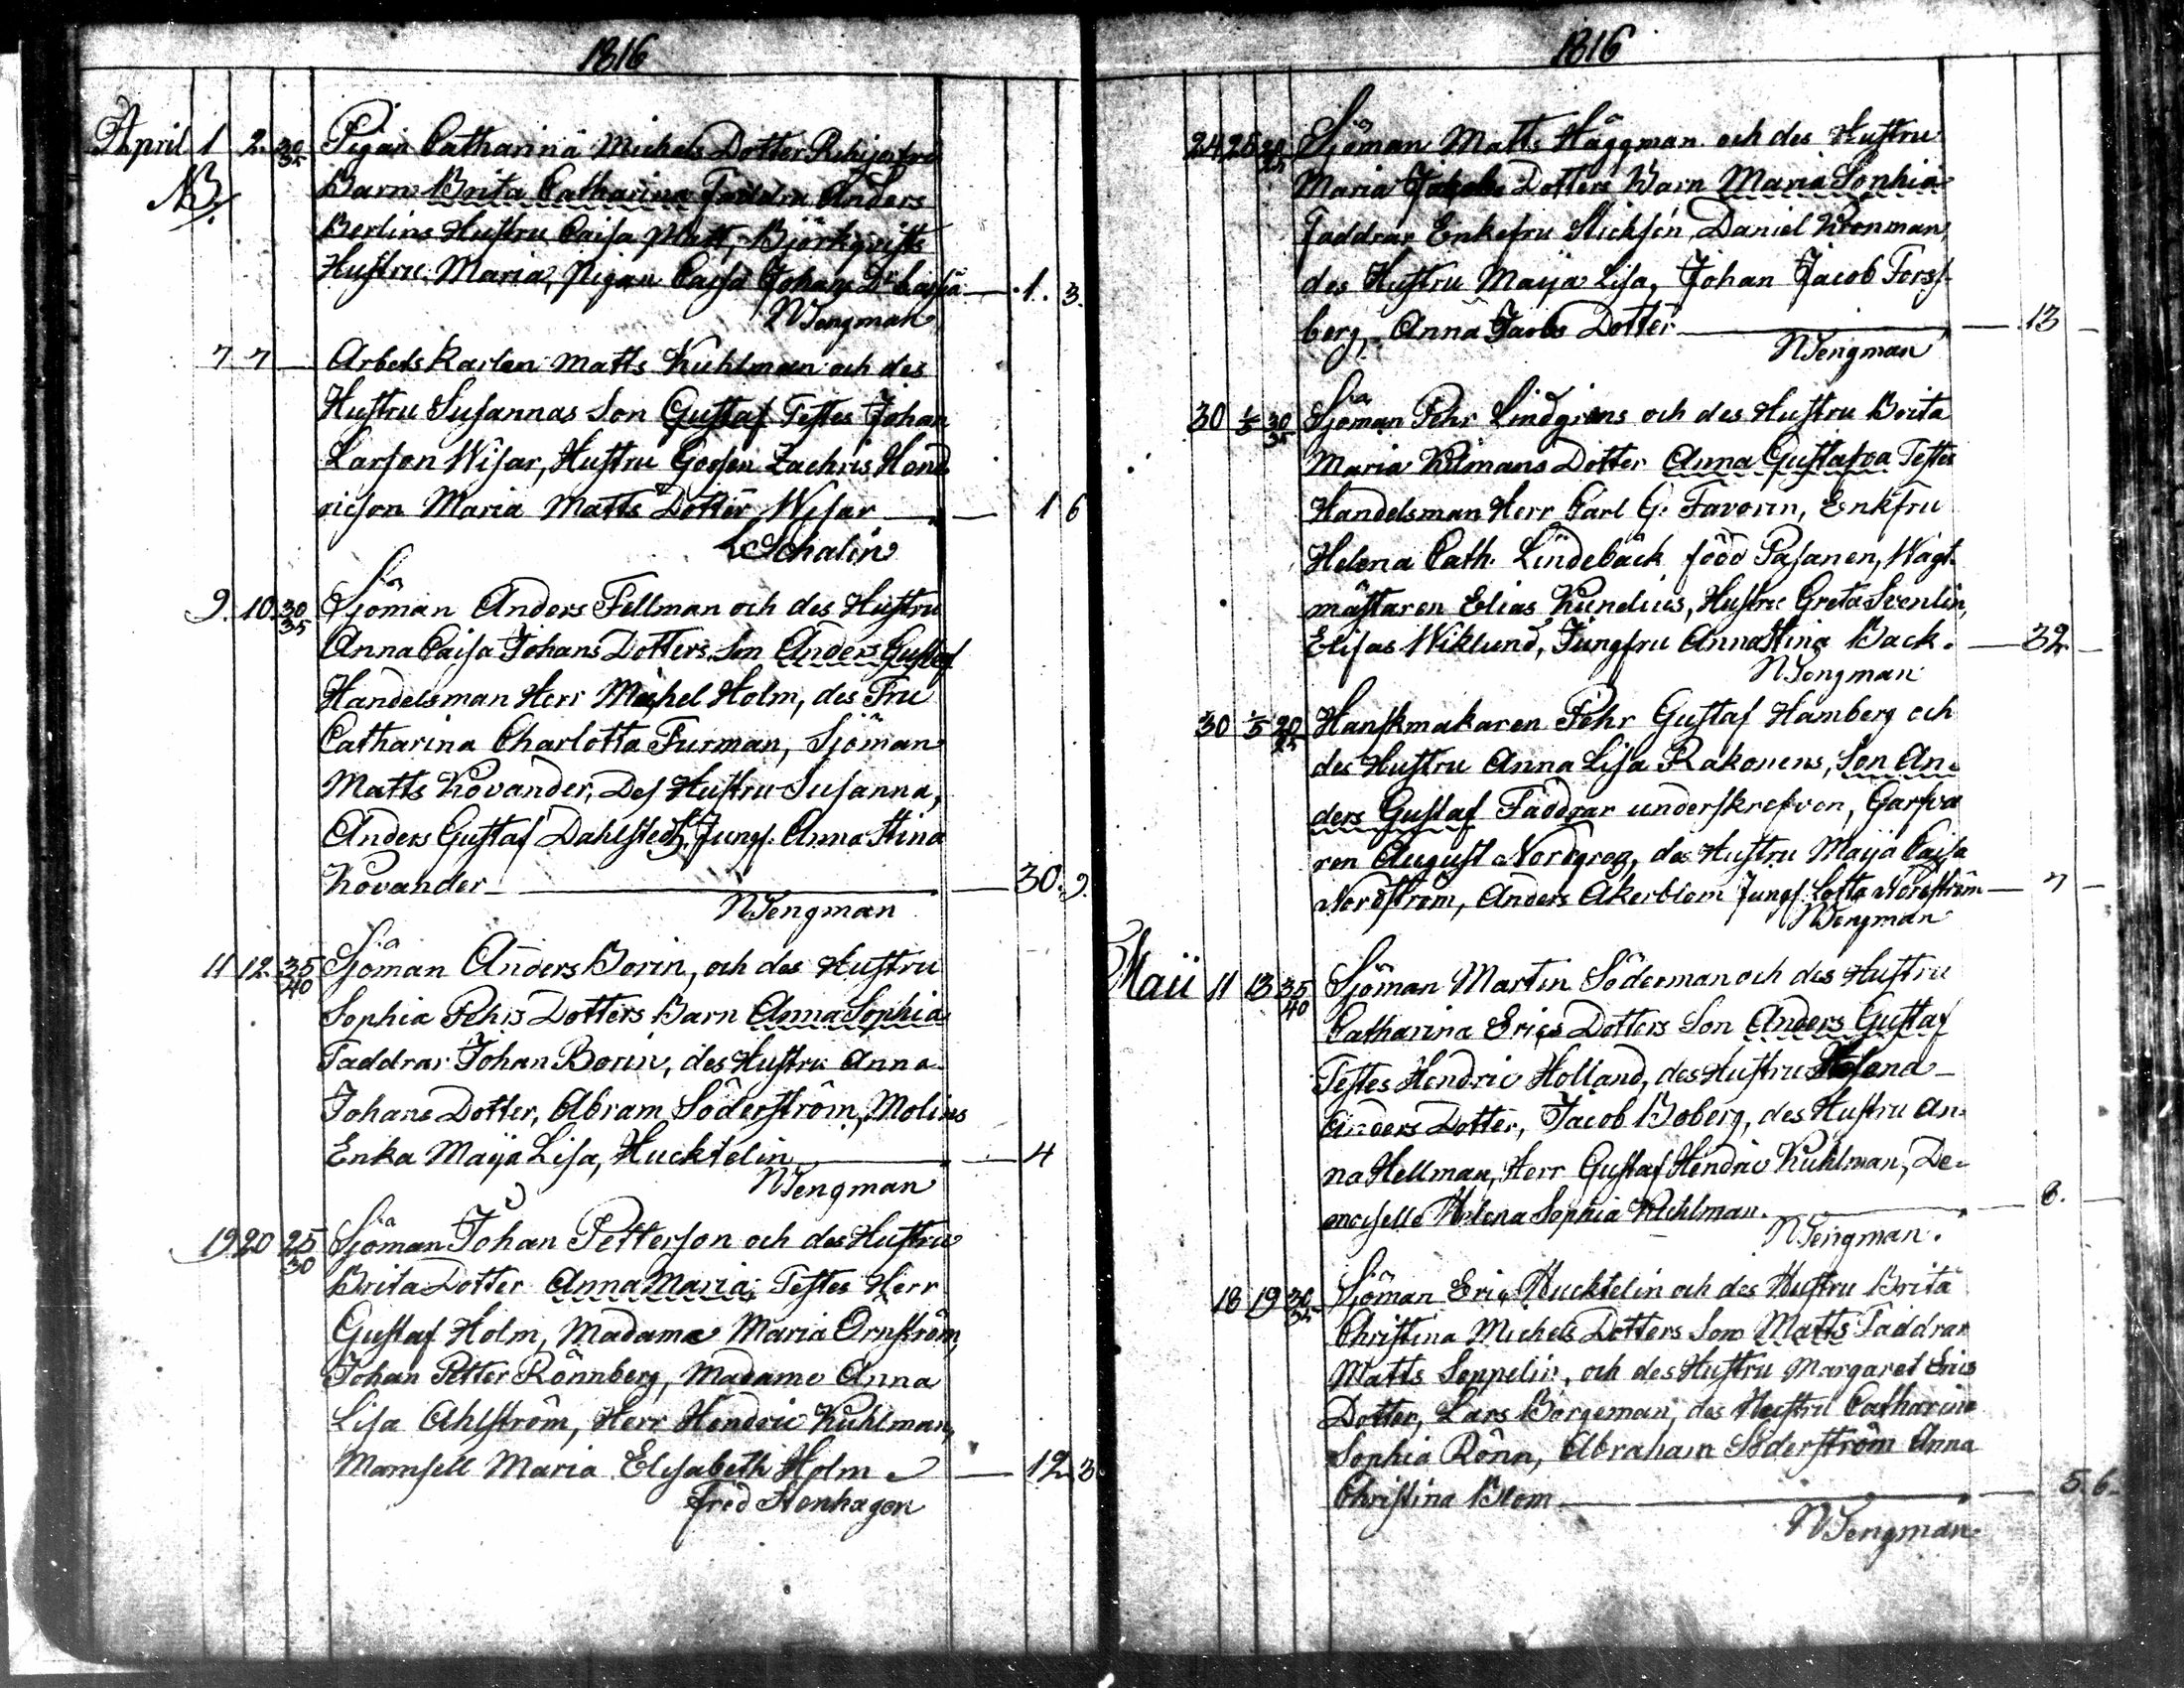 1816
April 1 2. 30/35 Pigan Catharina Michels Dotter
NB. Barn Brita Catharina Faddra Anders
Berlins Hustru Caisa Björkqvists
Hustru Maria, Pigan Caisa Johans Dr Caisa — 1. 3.
NTengman
7 7 — Arbets Karlen Matts Kuhlman och des
Hustru Susannas Son Gustaf Testes Johan
Larson Wisar, Hustru Zachris Hend
ricson Maria Matts Dotter Wisar — 1 6
Schalin
9. 10. 30/35 Sjöman Anders Fellman och des Hustru
Anna Caisa Johans Dotters Son Anders Gustaf
Handelsman Herr Michel Holm, des Fru
Catharina Charlotta Furman, Sjöman
Matts Kovander, Des Hustru Susanna,
Anders Gustaf Dahlstedt, Jungf. Anna Stina
Kovander — 30. 9.
NTengman
11 12. 35/40 Sjöman Anders Borin, och des Hustru
Sophia Pehrs Dotters Barn Anna Sophia
Faddrar Johan Borin, des Hustru Anna
Johans Dotter, Abram Söderström, Molins
Enka Maija Lisa, Hucktelin — 4
NTengman
19 20 25/30 Sjöman Johan Petterson och des Hustru
Brita Dotter Anna Maria, Testes Herr
Gustaf Holm, Madame Maria Ornström,
Johan Petter Rönnberg, Madame Anna
Lisa Ahlström, Herr Hendric Kuhlman,
Mamsell Maria Elisabeth Holm — 12. 3
fred Stenhagen
1816
24 25 Sjöman Matts Häggman och des Hustru
Maria Jakobs Dotters Barn Maria Sophia
Faddrar Enkefru Daniel Kronman,
des Hustru Maija Lisa, Johan Jacob Forss
berg, Anna Jacobs Dotter — 13 —
NTengman
30 1/5 30/35 Sjöman Pehr Lindgrens och des Hustru Brita
Maria Kilmans Dotter Anna Gustafva Testes
Handelsman Herr Carl G. Favorin, Enkfru
Helena Cath. Lindebäck född Pasanen, Wagt
mästaren Elias Kunelius, Hustru Greta Svenlin,
Elisas Wiklund, Jungfru Anna Stina Back. — 32 —
NTengman
30 1/5 20/25 Hanskmakaren Pehr Gustaf Hamberg och
des Hustru Anna Lisa Rakonens, Son An=
ders Gustaf Faddrar underskrefven, Garfva
ren August Nordgren, des Hustru Maija Caisa
Nordström, Anders Åkerblom Jungf. Lotta Nordström — 7 —
NTengman
Maii 11 13 35/40 Sjöman Martin Söderman och des Hustru
Catharina Erics Dotters Son Anders Gustaf
Testes Hendric Holland, des Hustru Helena
Anders Dotter, Jacob Boberg, des Hustru An=
na Hellman, Herr Gustaf Hendric Kuhlman, De=
moiselle Helena Sophia Kuhlman. — 8. —
NTengman.
18 19 30/35 Sjöman Eric Hucktelin och des Hustru Brita
Christina Michels Dotters Son Matts Faddrar
Matts Seppelin, och des Hustru Margaret Erics
Dotter, Lars Börgeman, des Hustru Catharina
Sophia Rönn, Abraham Söderström Anna
Christina Blom — 5 6
NTengman